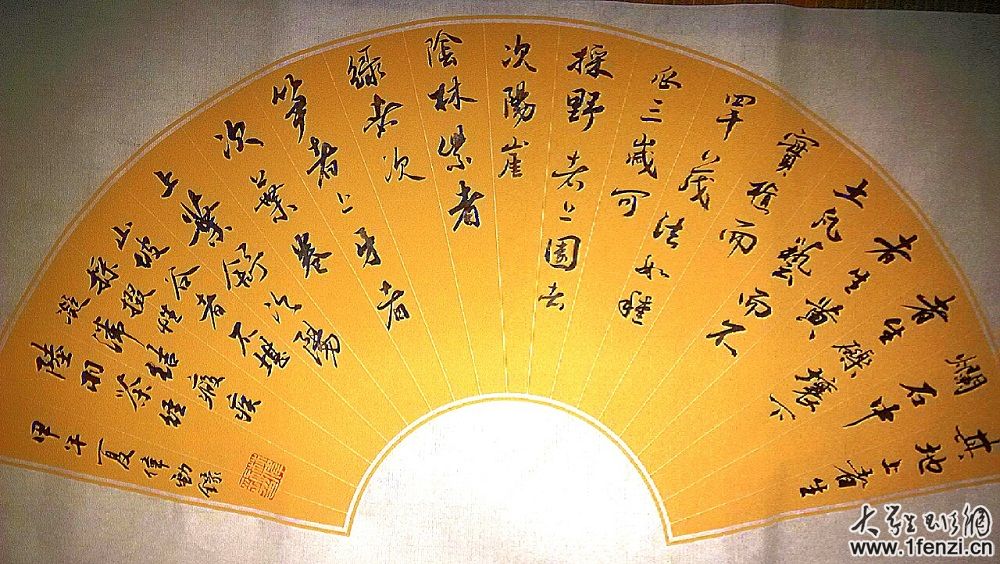 其地上者生
爛石中
者生礫壤下
者生黃
土凡藝而不
實植而
罕茂法如種
瓜三歲可
採野者上園者
次陽崖
陰林紫者
綠者次
筍者上牙者
次葉卷
上葉舒次陽
山坡谷者不堪
採掇性
凝滯結瘕疾
陸羽茶經
甲午夏偉勁錄
大学生书法网
www.1fenzi.cn